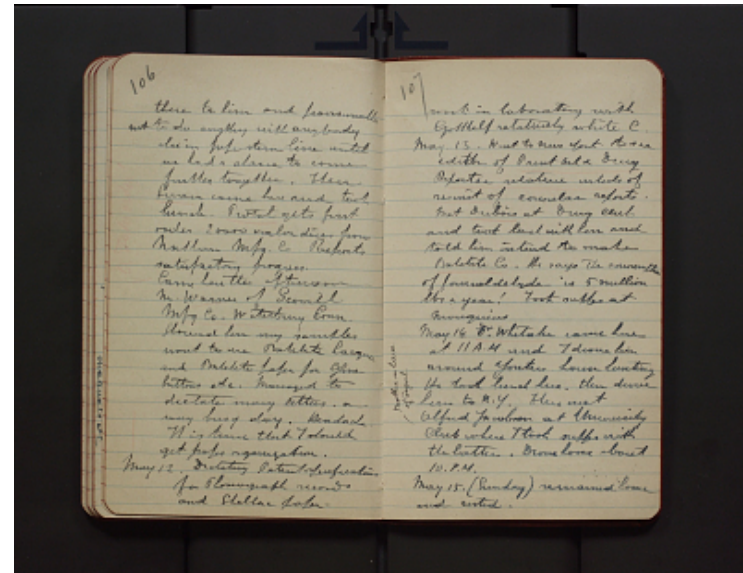 106
there to him and
not to do anything with anybody
else in line until
we had a chance to come
further together. Then
came here and took
lunch. gets first
order 20000 valve discs from
Nathan Mfg. Co Reports
satisfactory progress.
in the afternoon
Mr. Warner of Scovill
Mfg Co. Waterbury Conn.
Showed him my samples
want to use Bakelite Lacquer
and Bakelite paper for
buttons etc. Managed to
dictate many letters. a
very busy day. Headache
It is time that I should
get proper organization.
May 12. Dictating Patent specification
for Phonograph records
and Shellac paper.
107
work in laboratory with
Gotthelf relatively white C.
May 13. Went to New York to see
editor of Paint Oil & Drug
Reporter relative
of consular reports.
Met at Drug Club
and took lunch with him and
told him intend to make
Bakelite Co. He says the consumption
of formaldehyde is 5 million
lbs a year! Took supper at
May 14. Dr. Whitaker came here
at 11 A.M and I drove him
around Yonkers house hunting
He took lunch here, then drive
here to N.Y. There met
Alfred Jacobson at University
Club where I took supper with
the latter. Drove home about
10. P.M.
May 15. (Sunday) remained home
and rested.